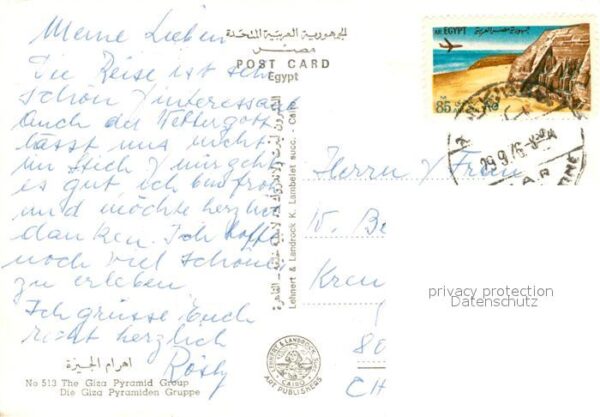 Meine Lieben
Die Reise ist sehr
schön & interessant
Auch der Wettergott
lässt uns nicht
im Stich & mir geht
es gut, ich bin froh
und möchte herzlich
danken. Ich hoffe
noch viel Schönes
zu erleben
Ich grüsse Euch
recht herzlich
Rösly
اهرام الجيزة
No 513 The Giza Pyramid Group
Die Giza Pyramiden Gruppe
لجمهورية العربية المتحدة
مصر
POST CARD
Egypt
Lehnert & Landrock K. Lambelet succ. - Cai
LEHNERT & LANDROCK
CAIRO
ART PUBLISHERS
AR EGYPT
85
29.9.76
Herrn & Frau
W. Be
Kreu
80
CH
privacy protection
Datenschutz